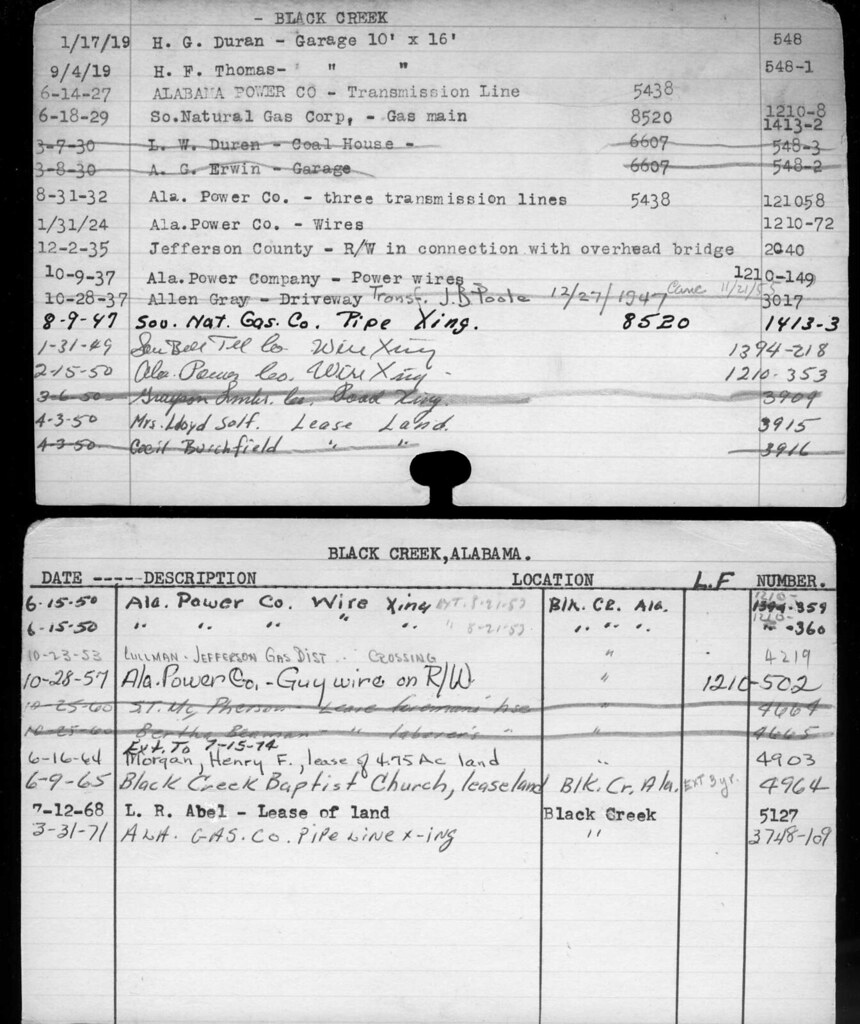 - BLACK CREEK
1/17/19 H. G. Duran - Garage 10' x 16' 548
9/4/19 H. F. Thomas- " " 548-1
6-14-27 ALABAMA POWER CO - Transmission Line 5438
6-18-29 So.Natural Gas Corp, - Gas main 8520 1210-8
1413-2
3-7-30 L. W. Duren - Coal House - 6607 548-3
3-8-30 A. G. Erwin - Garage 6607 548-2
8-31-32 Ala. Power Co. - three transmission lines 5438 121058
1/31/24 Ala.Power Co. - Wires 1210-72
12-2-35 Jefferson County - R/W in connection with overhead bridge 2040
10-9-37 Ala.Power Company - Power wires 1210-149
10-28-37 Allen Gray - Driveway Transf. J.B Poole 12/27/1947 Canc 11/21/55 3017
8-9-47 Sou. Nat. Gas. Co. Pipe Xing. 8520 1413-3
1-31-49 Sou Bell Tel Co. Wire Xing 1394-218
2-15-50 Ala. Power Co. Wire Xing - 1210-353
3-6-50 Grayson Co. Road Xing. 3909
4-3-50 Mrs. Lloyd Self. Lease Land. 3915
4-3-50 Cecil Burchfield " " 3916
BLACK CREEK,ALABAMA.
DATE -----DESCRIPTION LOCATION L.F NUMBER.
6-15-50 Ala. Power Co. Wire Xing EXT. 8-21-53 Blk. CR. Ala. 1210-
1394-359
6-15-50 " " " " " " 8-21-53 " " " 1210-
" -360
10-23-53 CULLMAN-JEFFERSON GAS DIST.. CROSSING " 4219
10-28-57 Ala.Power Co.-Guy wire on R/W " 1210-502
10-25-60 S.T. Mc Pherson - Lease foreman's hse " 4664
10-25-60 Bertha Beaman - " laborer's " " 4665
Ext. To 7-15-74
6-16-64 Morgan, Henry F., lease of 4.75 Ac land " 4903
6-9-65 Black Creek Baptist Church, lease land Blk. Cr. Ala. EXT 3 yr. 4964
7-12-68 L. R. Abel - Lease of land Black Creek 5127
3-31-71 ALA. GAS. CO. PIPE LINE X-ING " 3748-109